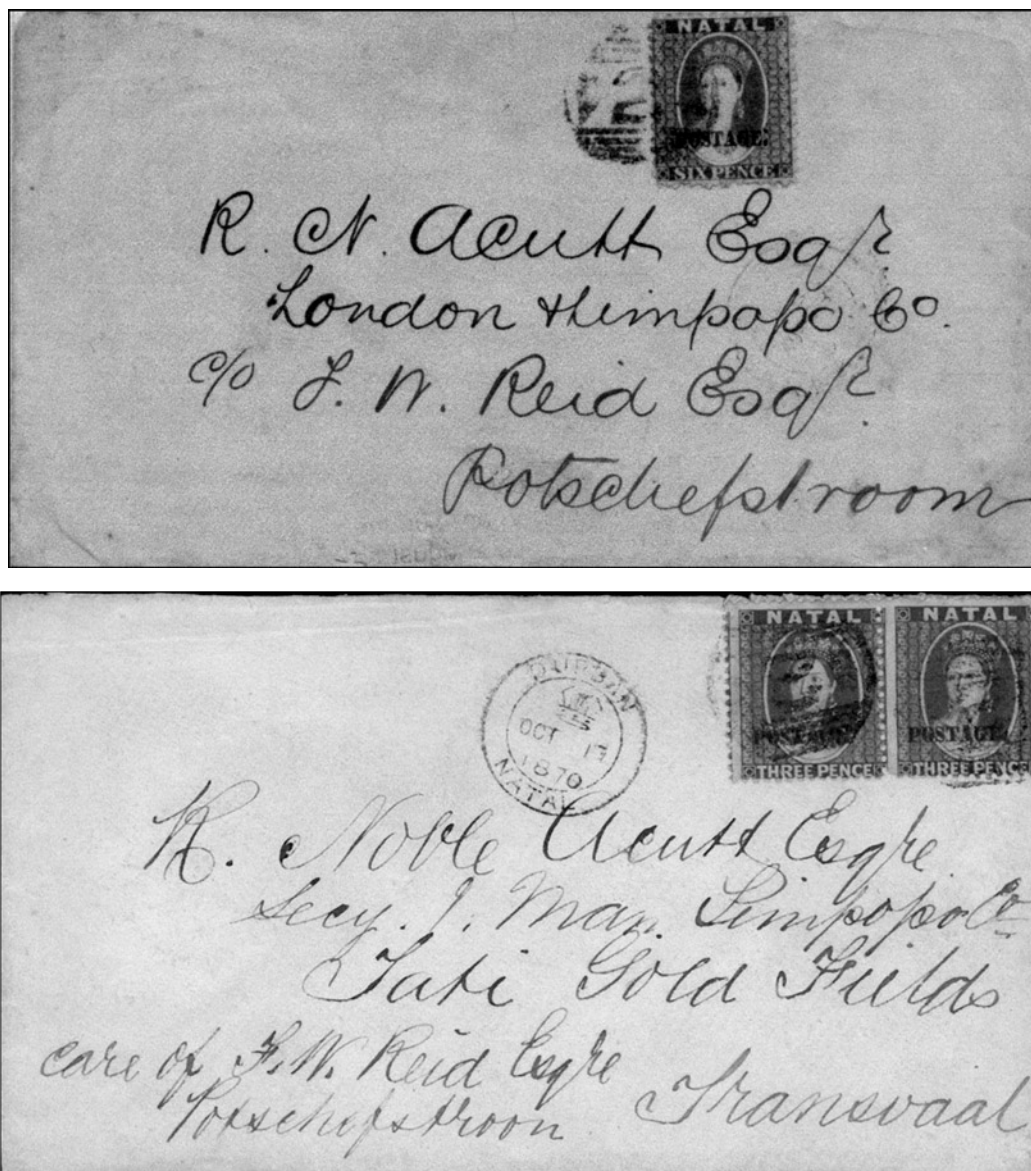 NATAL
POSTAGE.
SIX PENCE
R. N. Acutt Esqr.
London & Limpopo Co.
c/o F. W. Reid Esqr.
Potschefstroom
NATAL NATAL
POSTAGE. POSTAGE.
THREE PENCE THREE PENCE
DURBAN
OCT
1870
NATAL
R. Noble Acutt Esqre
Secy. Man. Limpopo Co
Tati Gold Fields
care of F. W. Reid Esqre
Potschefstroon Transvaal